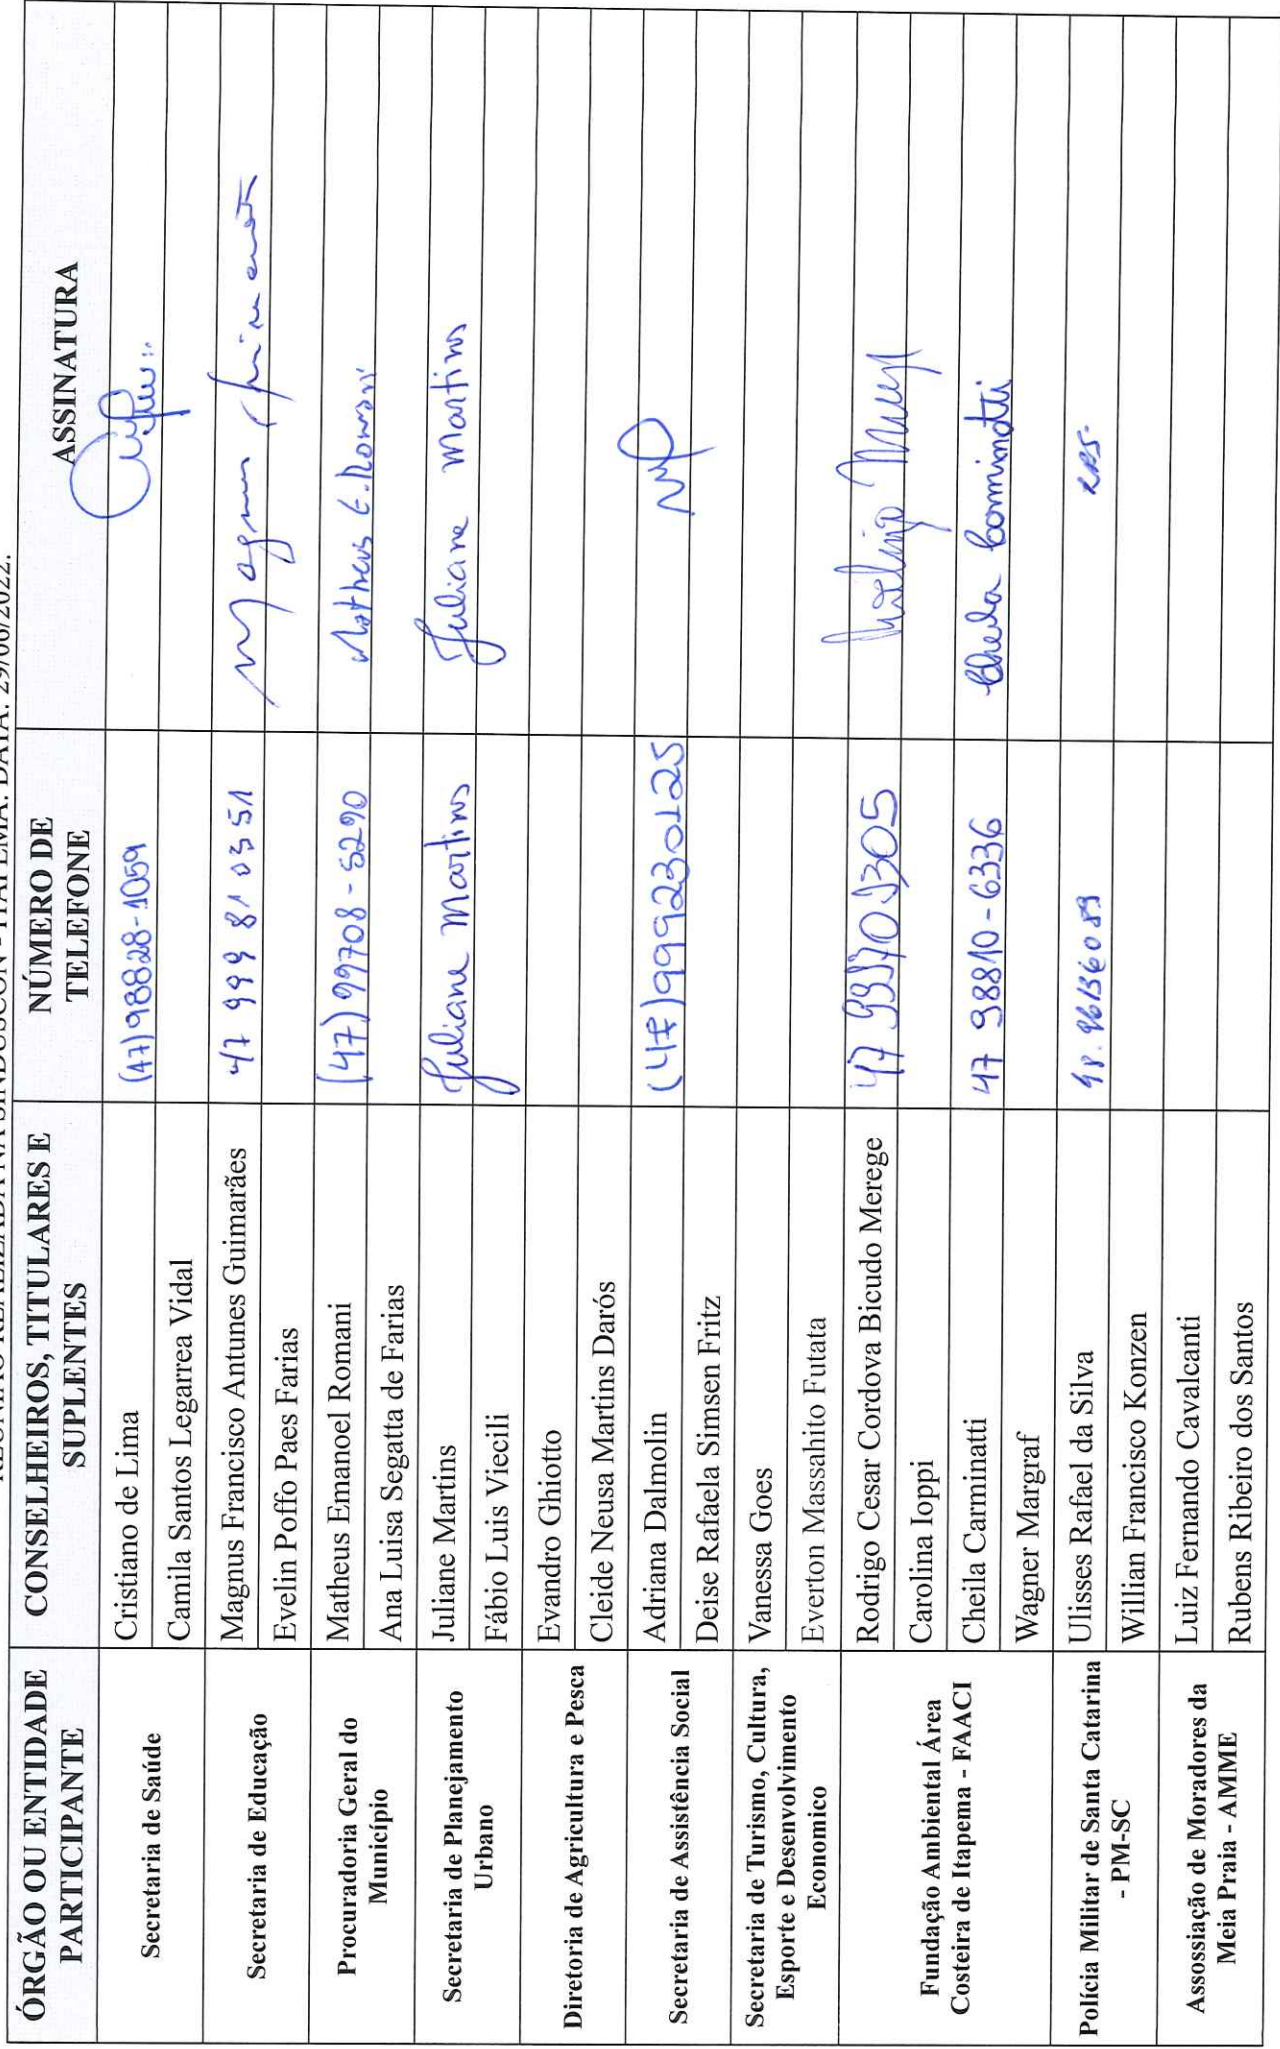 REUNIÃO REALIZADA NA SINDUSCON - ITAPEMA. DATA: 29/06/2022.
ÓRGÃO OU ENTIDADE PARTICIPANTE
CONSELHEIROS, TITULARES E SUPLENTES
NÚMERO DE TELEFONE
ASSINATURA
Secretaria de Saúde
Cristiano de Lima
(47)98828-1059
Camila Santos Legarrea Vidal
Secretaria de Educação
Magnus Francisco Antunes Guimarães
47 999 81 0351
Evelin Poffo Paes Farias
Procuradoria Geral do Município
Matheus Emanoel Romani
(47) 99708-5290
Matheus E. Romani
Ana Luisa Segatta de Farias
Secretaria de Planejamento Urbano
Juliane Martins
Juliane Martins
Juliane Martins
Fábio Luis Viecili
Diretoria de Agricultura e Pesca
Evandro Ghiotto
Cleide Neusa Martins Darós
Secretaria de Assistência Social
Adriana Dalmolin
(47)999230125
Deise Rafaela Simsen Fritz
Secretaria de Turismo, Cultura, Esporte e Desenvolvimento Economico
Vanessa Goes
Everton Massahito Futata
Fundação Ambiental Área Costeira de Itapema - FAACI
Rodrigo Cesar Cordova Bicudo Merege
47
Carolina Ioppi
Cheila Carminatti
47 98810-6336
Cheila Carminatti
Wagner Margraf
Polícia Militar de Santa Catarina - PM-SC
Ulisses Rafael da Silva
Willian Francisco Konzen
Assossiação de Moradores da Meia Praia - AMME
Luiz Fernando Cavalcanti
Rubens Ribeiro dos Santos